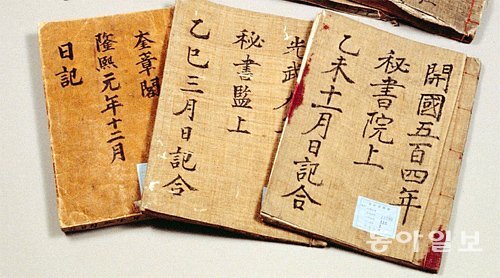 開國五百四年
秘書院上
乙未十一月日記合
光武
秘書監上
乙巳三月日記合
奎章閣
隆熙元年十二月
日記
동아일보